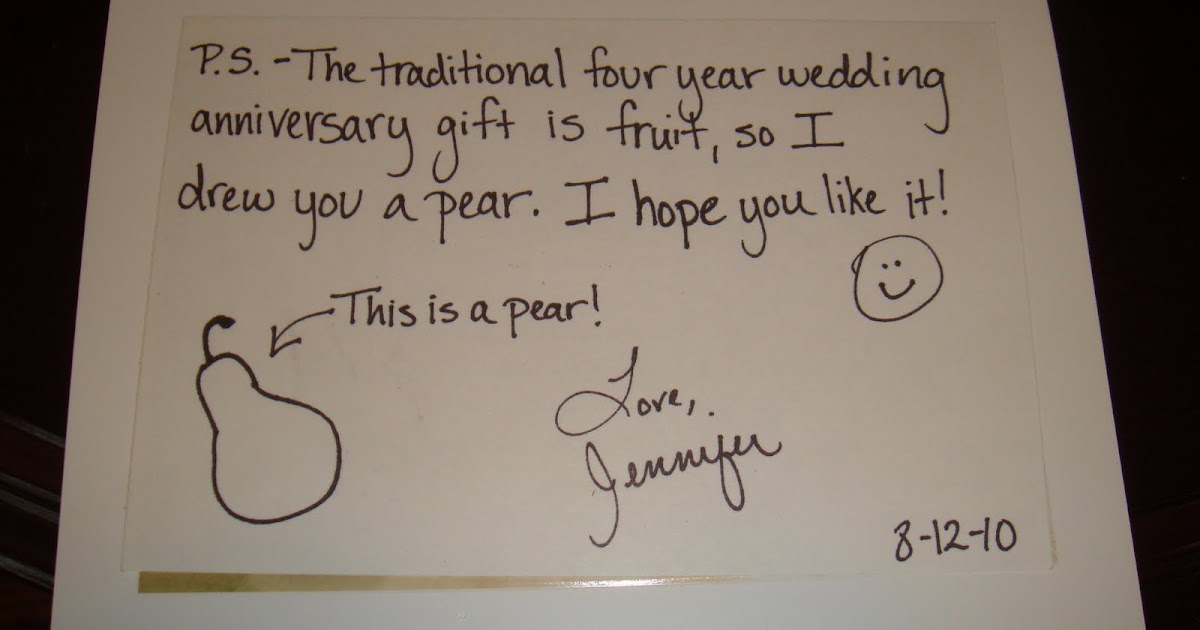 P.S. - The traditional four year wedding
anniversary gift is fruit, so I
drew you a pear. I hope you like it!
This is a pear!
Love,
Jennifer
8-12-10